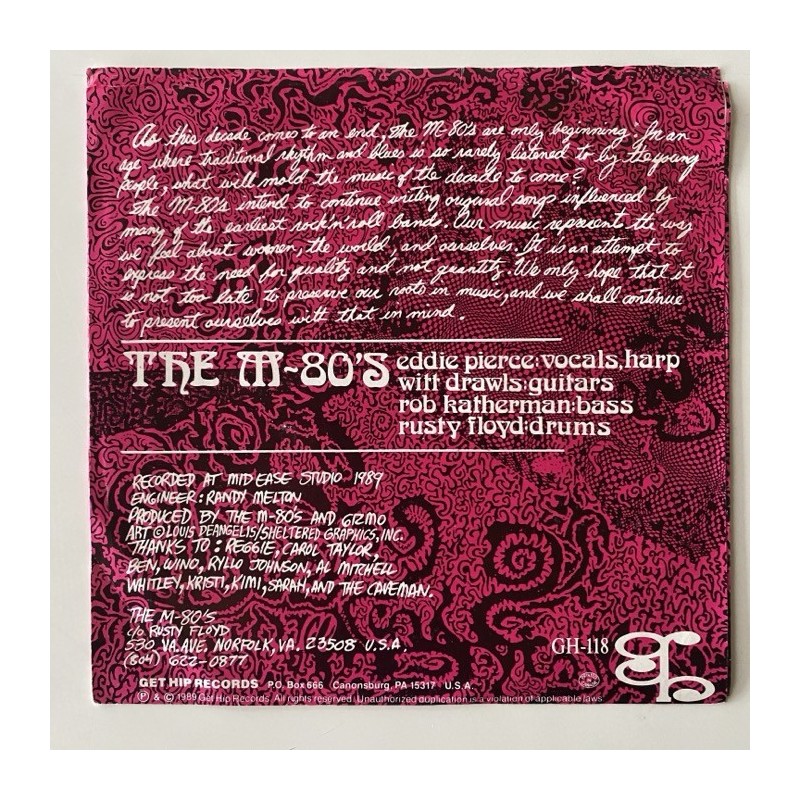 As this decade comes to an end, the M-80's are only beginning. In an
age where traditional rhythm and blues is so rarely listened to by the young
people, what will mold the music of the decade to come?
The M-80's intend to continue writing original songs influenced by
many of the earliest rock'n'roll bands. Our music represents the way
we feel about women, the world, and ourselves. It is an attempt to
express the need for quality and not quantity. We only hope that it
is not too late to preserve our roots in music, and we shall continue
to present ourselves with that in mind.
THE M-80'S
eddie pierce:vocals,harp
witt drawls:guitars
rob katherman:bass
rusty floyd:drums
RECORDED AT MID EASE STUDIO 1989
ENGINEER: RANDY MELTON
PRODUCED BY THE M-80'S AND GIZMO
ART © LOUIS DEANGELIS/SHELTERED GRAPHICS, INC.
THANKS TO: REGGIE, CAROL TAYLOR,
BEN, WINO, RYLLO JOHNSON, AL MITCHELL
WHITLEY, KRISTI, KIMI, SARAH, AND THE CAVEMAN.
THE M-80'S
c/o RUSTY FLOYD
530 VA. AVE. NORFOLK, VA. 23508 U.S.A.
(804) 622-0877
GH-118
GET HIP RECORDS P.O. Box 666 Canonsburg, PA 15317 U.S.A.
℗ & © 1989 Get Hip Records. All rights reserved. Unauthorized duplication is a violation of applicable laws